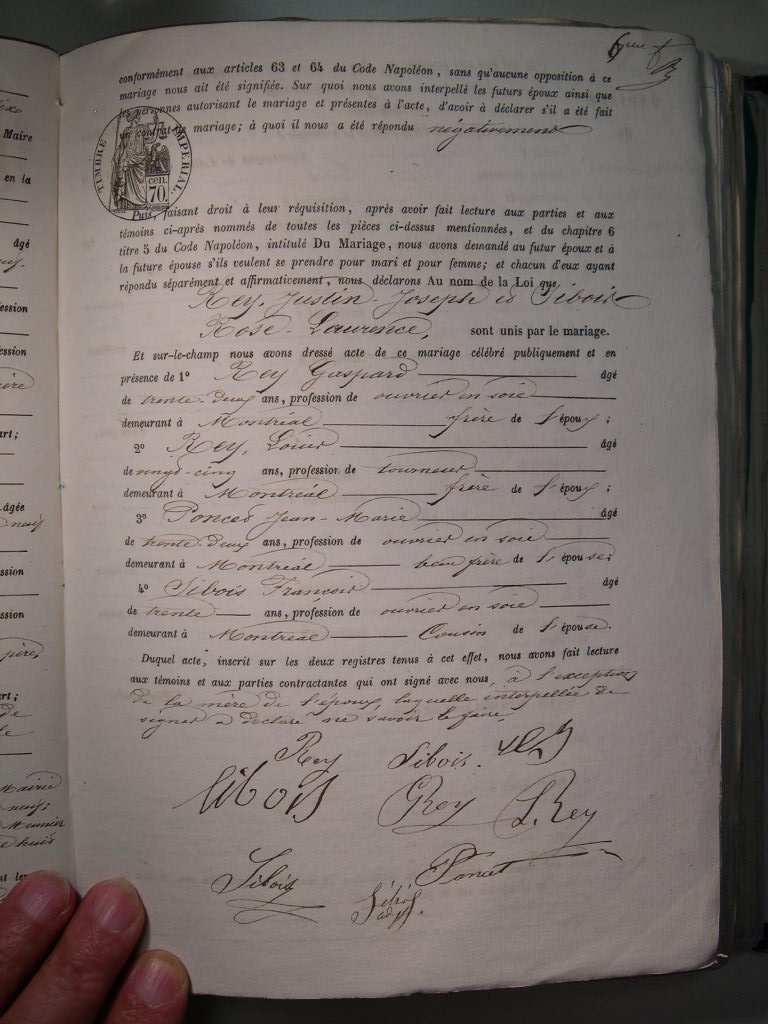 6me f
conformément aux articles 63 et 64 du Code Napoléon, sans qu'aucune opposition à ce
mariage nous ait été signifiée. Sur quoi nous avons interpellé les futurs époux ainsi que
les personnes autorisant le mariage et présentes à l'acte, d'avoir à déclarer s'il a été fait
un contrat de mariage; à quoi il nous a été répondu négativement
TIMBRE IMPÉRIAL
cen.
70.
Puis, faisant droit à leur réquisition, après avoir fait lecture aux parties et aux
témoins ci-après nommés de toutes les pièces ci-dessus mentionnées, et du chapitre 6
titre 5 du Code Napoléon, intitulé Du Mariage, nous avons demandé au futur époux et à
la future épouse s'ils veulent se prendre pour mari et pour femme; et chacun d'eux ayant
répondu séparément et affirmativement, nous déclarons Au nom de la Loi que
Rey, Justin-Joseph et Sibois
Rose-Laurence, sont unis par le mariage.
Et sur-le-champ nous avons dressé acte de ce mariage célébré publiquement et en
présence de 1º Rey Gaspard âgé
de trente-deux ans, profession de ouvrier en soie
demeurant à Montréal frère de l'époux;
2º Rey, Louis âgé
de vingt-cinq ans, profession de tourneur
demeurant à Montréal frère de l'époux;
3º Poncet Jean-Marie âgé
de trente-deux ans, profession de ouvrier en soie
demeurant à Montréal beau frère de l'épouse;
4º Sibois François âgé
de trente ans, profession de ouvrier en soie
demeurant à Montréal Cousin de l'épouse.
Duquel acte, inscrit sur les deux registres tenus à cet effet, nous avons fait lecture
aux témoins et aux parties contractantes qui ont signé avec nous, à l'exception
de la mère de l'époux, laquelle interpellée de
signer a déclaré ne savoir le faire
Rey Sibois.
Sibois Rey L. Rey
Sibois Poncet
Sibois
adjt.
Maire
en la
âgé
ession
ession
ère
rt;
âgée
neuf
ssion
ssion
père,
rt;
de
Mairie
neuf;
Meunier
huis